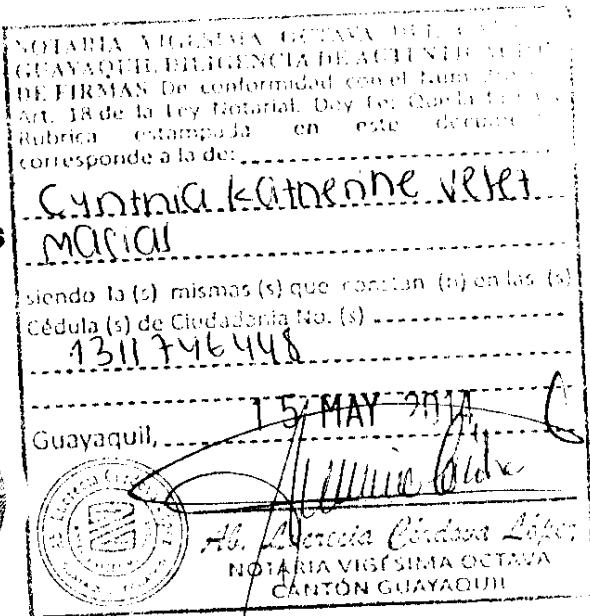 NOTARIA VIGESIMA OCTAVA DEL
GUAYAQUIL DILIGENCIA DE AUTENTICACION
DE FIRMAS De conformidad con el Num
Art. 18 de la Ley Notarial. Doy Fe: Que la
Rubrica estampada en este
corresponde a la de:
Cynthia Katherine
Macias
siendo la (s) mismas (s) que constan (n) en las (s)
Cédula (s) de Ciudadanía No. (s)
1311746448
15 MAY 2014
Guayaquil,
Ab. Lucrecia Córdova López
NOTARIA VIGÉSIMA OCTAVA
CANTÓN GUAYAQUIL